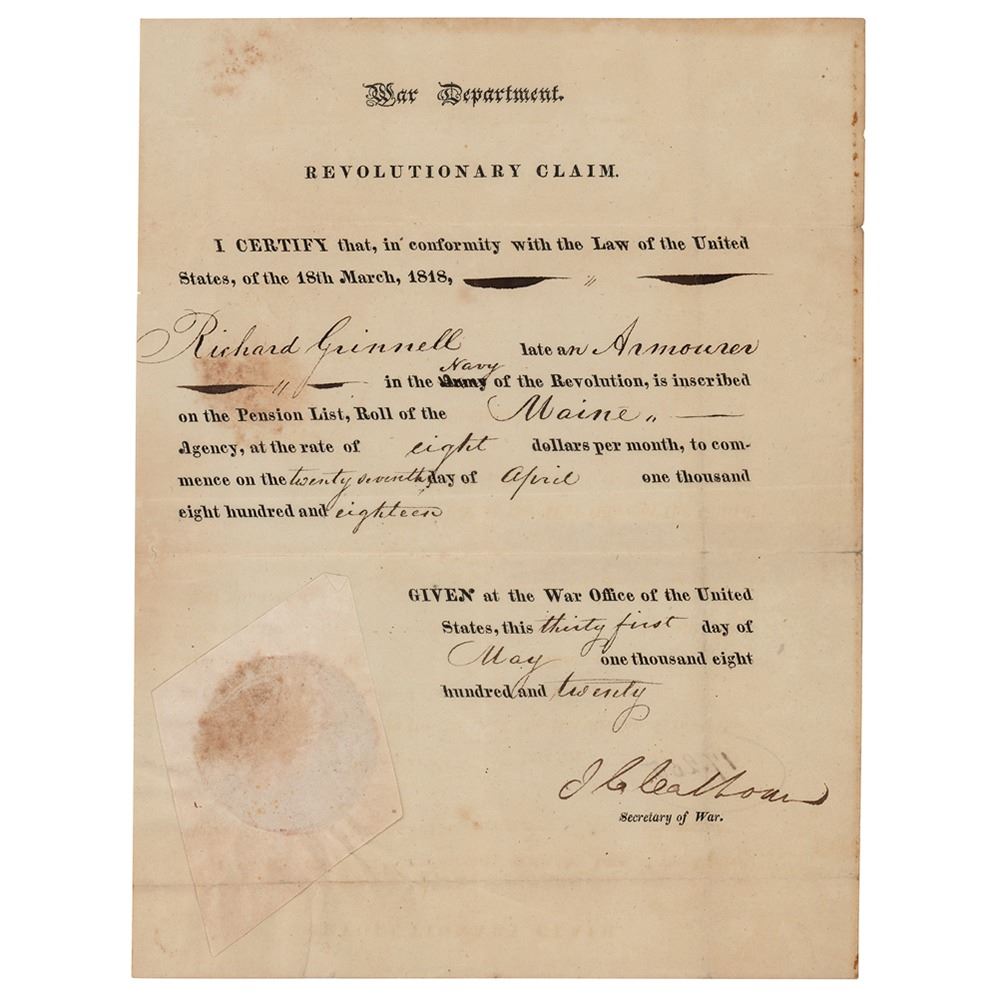 War Department.
REVOLUTIONARY CLAIM.
I CERTIFY that, in conformity with the Law of the United
States, of the 18th March, 1818, "
Richard Grinnell late an Armourer
Navy
" in the Army of the Revolution, is inscribed
on the Pension List, Roll of the Maine "
Agency, at the rate of eight dollars per month, to com-
mence on the twenty seventh day of April one thousand
eight hundred and eighteen
GIVEN at the War Office of the United
States, this thirty first day of
May one thousand eight
hundred and twenty
J C Calhoun
Secretary of War.